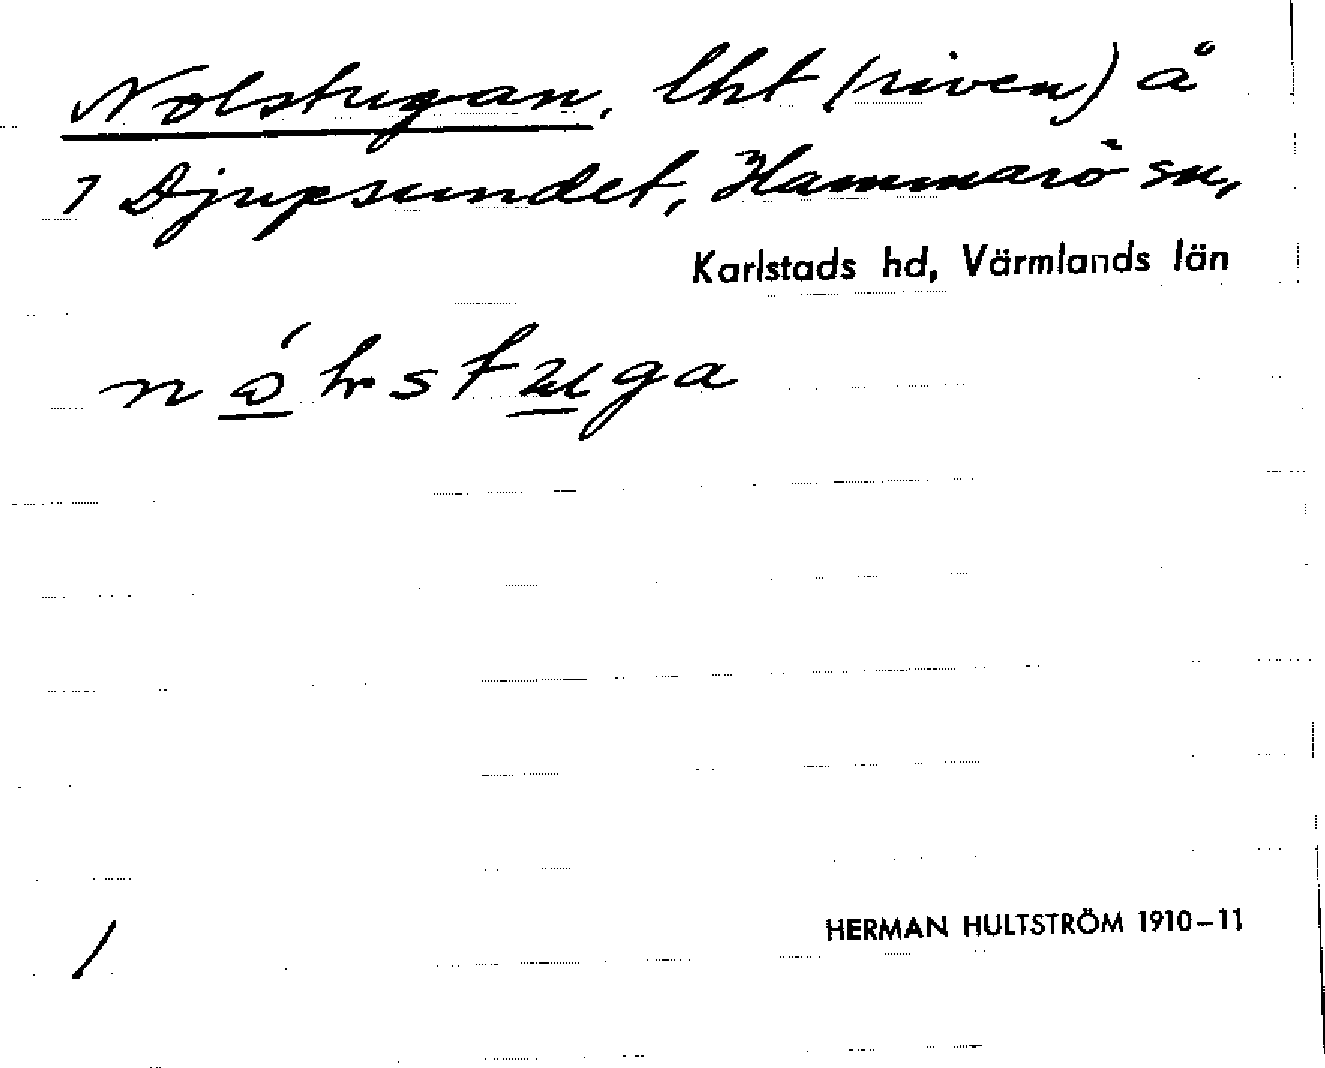 Nolstugan, lht (riven) å
7 Djupsundet, Hammarö sn,
Karlstads hd, Värmlands län
HERMAN HULTSTRÖM 1910–11